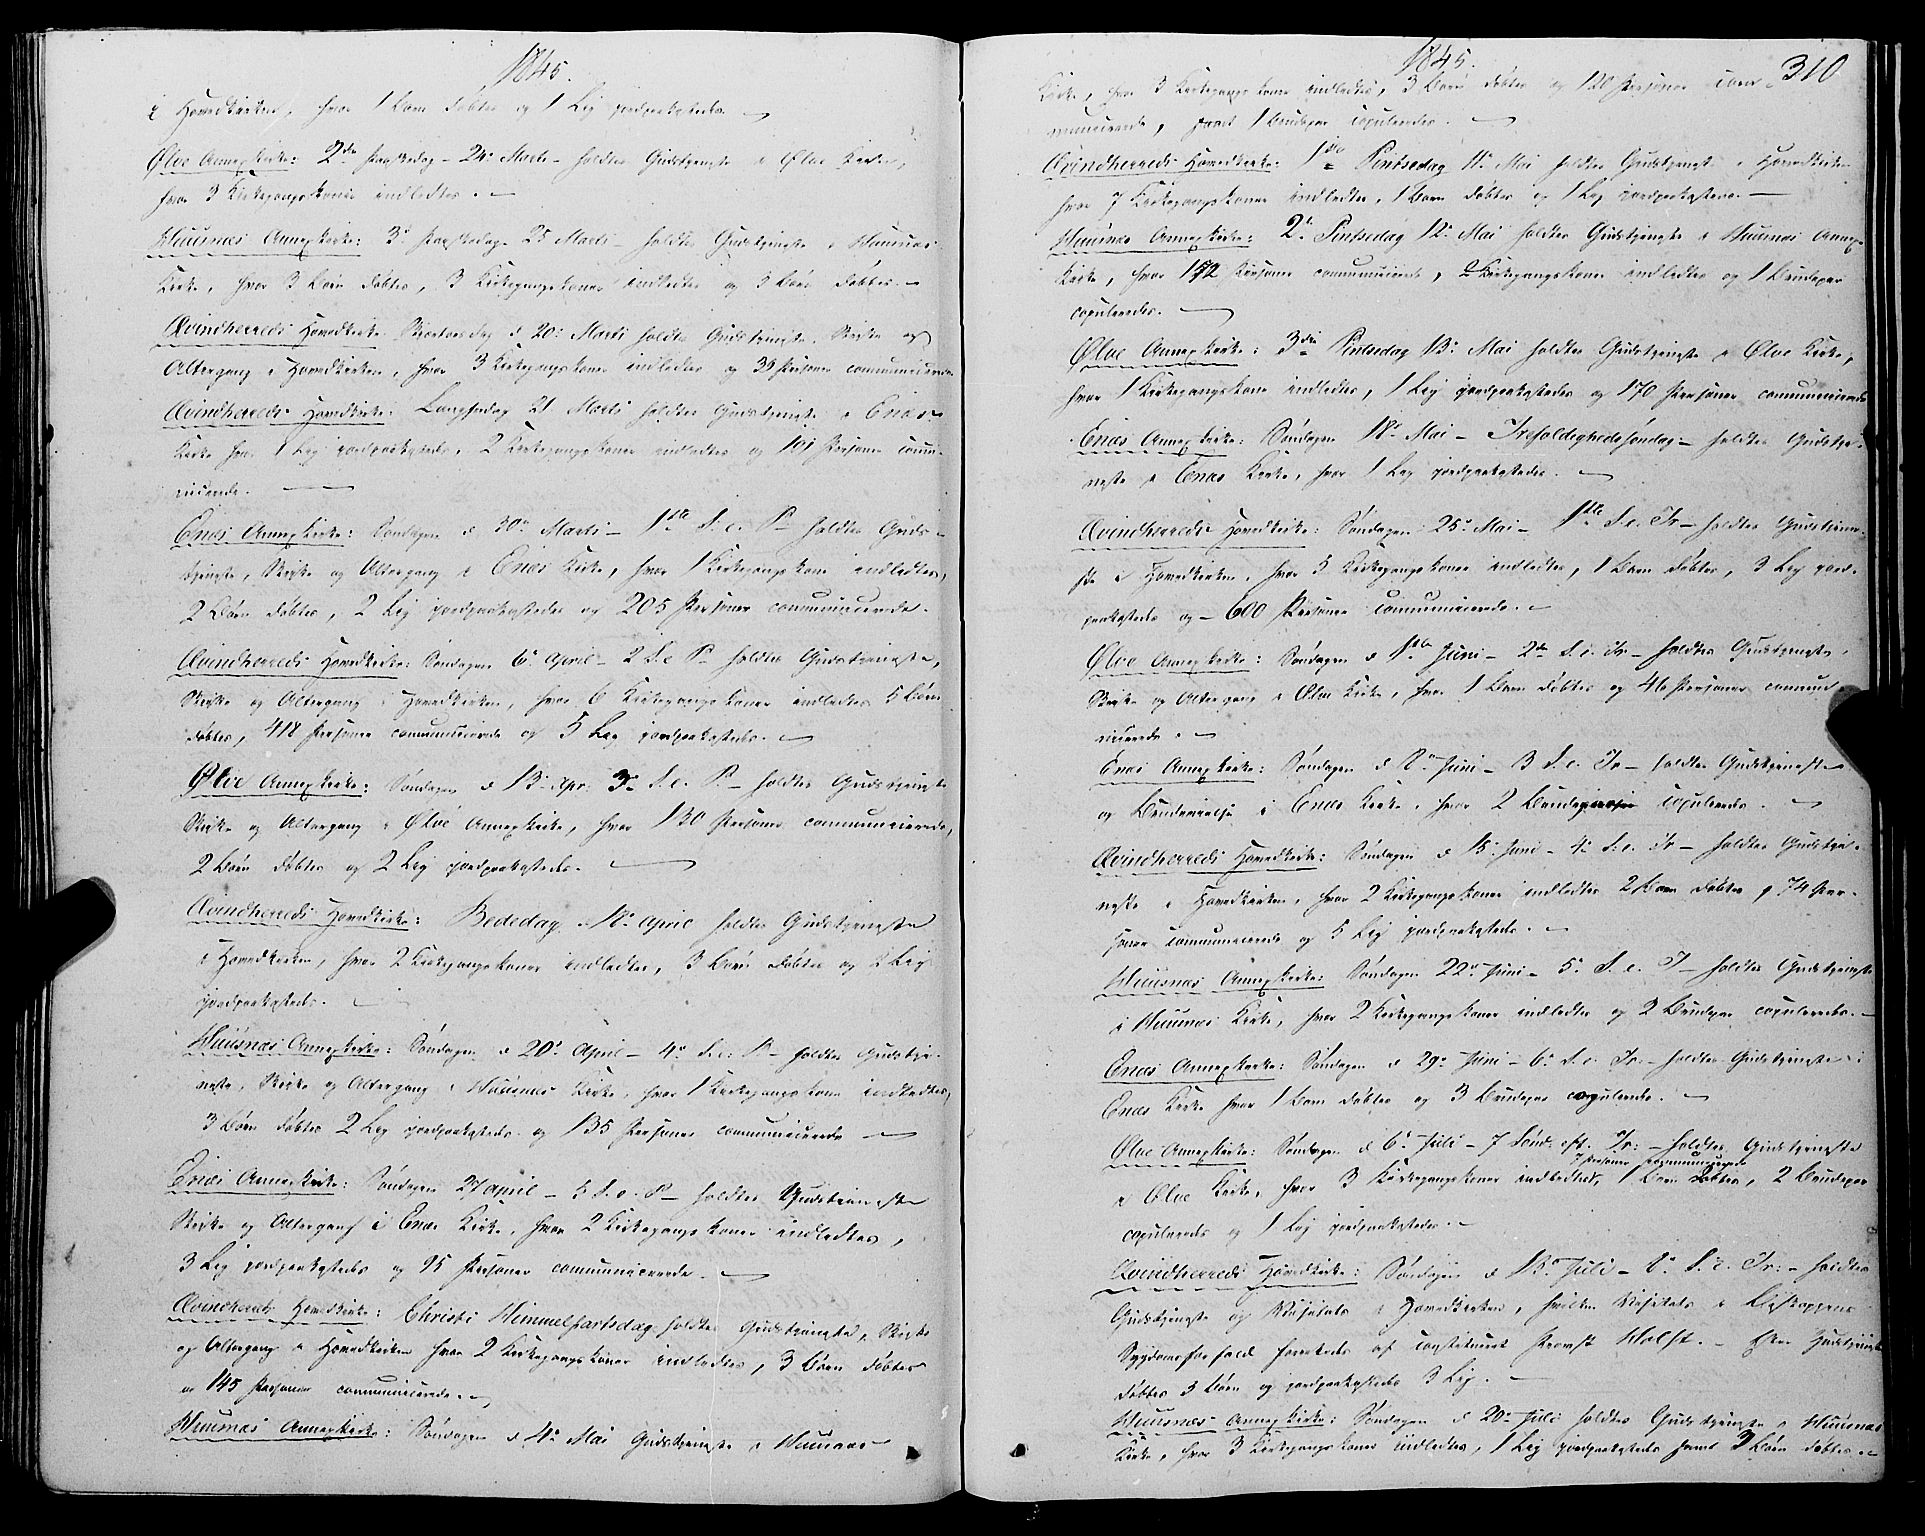 1845.
i Hovedkirken, hvor 1 Barn døbtes og 1 Lig jordpaakastedes.
Ølve Annexkirke: 2den Paaskedag - 24de Marti - holdtes Gudstjeneste i Ølve Kirke,
hvor 3 Kirkegangskoner indledtes. -
Huusnæs Annexkirke: 3die Paaskedag 25 Marti - holdtes Gudstjeneste i Huusnæs
Kirke, hvor 3 Børn døbtes, 3 Kirkegangskoner indledtes og 3 Børn døbtes. -
Qvindherreds Hovedkirke Skjærtorsdag d 20de Marti holdtes Gudstjeneste, Skrifte og
Altergang i Hovedkirken, hvor 3 Kirkegangskoner indledtes og 39 Personer communicerede
Qvindherreds Hovedkirke: Langfredag 21 Marti holdtes Gudstjeneste i Enæs
Kirke hvor 1 Lig jordpaakastedes, 2 Kirkegangskoner indledtes og 101 Personer commu-
nicerede.
Enæs Annexkirke: Søndagen d 30te Marti - 1ste S. e. P - holdtes Guds-
tjeneste, Skrifte og Altergang i Enæs Kirke, hvor 1 Kirkegangskone indledtes,
2 Børn døbtes, 2 Lig jordpaakastedes og 205 Personer communicerede.
Qvindherreds Hovedkirke: Søndagen 6te April - 2 S. e P - holdtes Gudstjeneste,
Skrifte og Altergang i Hovedkirken, hvor 6 Kirkegangskoner indledtes 5 Børn
døbtes, 418 Personer communicerede og 5 Lig jordpaakastedes. -
Ølve Annexkirke: Søndagen d 13de Apr: 3die S. e. P - holdtes Gudstjeneste
Skrifte og Altergang i Ølve Annexkirke, hvor 130 Personer communicerede,
2 Børn døbtes og 2 Lig jordpaakastedes. -
Qvindherreds Hovedkirke: Bededag 18de April holdtes Gudstjeneste
i Hovedkirken, hvor 2 Kirkegangskoner indledtes, 3 Børn døbtes og 2 Lig
jordpaakastedes. -
Huusnæs Annexkirke: Søndagen d 20de April - 4de S. e: P - holdtes Gudstje-
neste, Skrifte og Altergang i Huusnæs Kirke, hvor 1 Kirkegangskone indledtes,
3 Børn døbtes 2 Lig jordpaakastedes og 135 Personer communicerede -
Enæs Annexkirke: Søndagen 27 April - 5 S. e. P - holdtes Gudstjeneste
Skrifte og Altergang i Enæs Kirke, hvor 2 Kirkegangskoner indledtes,
3 Lig jordpaakastedes og 95 Personer communicerede. -
Qvindherreds Hovedkirke: Christi Himmelfartsdag holdtes Gudstjeneste, Skrifte
og Altergang i Hovedkirken hvor 2 Kirkegangskoner indledtes, 3 Børn døbtes
og 145 Personer communicerede. -
Huusnæs Annexkirke: Søndagen d 4de Mai Gudstjeneste i Huusnæs
1845.
310
Kirke, hvor 3 Kirkegangskoner indledtes, 3 Børn døbtes og 120 Personer com-
municerede, samt 1 Brudepar copuleredes. -
Qvindherreds Hovedkirke: 1ste Pintsedag 11te Mai holdtes Gudstjeneste i Hovedkirken
hvor 7 Kirkegangskoner indledtes, 1 Barn døbtes og 1 Lig jordpaakastedes. -
Huusnæs Annexkirke: 2den Pintsedag 12te Mai holdtes Gudstjeneste i Huusnæs Annex-
Kirke, hvor 172 Personer communicerede, 2 Kirkegangskoner indledtes og 1 Brudepar
copuleredes. -
Ølve Annexkirke: 3die Pintsedag 13de Mai holdtes Gudstjeneste i Ølve Kirke,
hvor 1 Kirkegangskone indledtes, 1 Lig jordpaakastedes og 170 Personer communicerede
Enæs Annexkirke: Søndagen 18de Mai - Trefoldighedssøndag - holdtes Gudstje-
neste i Enæs Kirke, hvor 1 Lig jordpaakastedes. -
Qvindherreds Hovedkirke: Søndagen 25de Mai - 1ste S. e. Tr - holdtes Gudstjene-
ste i Hovedkirken, hvor 5 Kirkegangskoner indledtes, 1 Barn døbtes, 3 Lig jord-
paakastedes og - 600 Personer communicerede. -
Ølve Annexkirke: Søndagen d 1ste Juni - 2den S. e. Tr - holdtes Gudstjeneste,
Skrifte og Altergang i Ølve Kirke, hvor 1 Barn døbtes og 46 Personer commu-
nicerede. -
Enæs Annexkirke: Søndagen d 8de Juni - 3 S. e. Tr - holdtes Gudstjeneste
og Brudevielse i Enæs Kirke, hvor 2 Brudepar copuleredes. -
Qvindherreds Hovedkirke: Søndagen d 15de Juni - 4de S. e. Tr - holdtes Gudstje-
neste i Hovedkirken, hvor 2 Kirkegangskoner indledtes 2 Børn døbtes, 74 Per-
soner communicerede og 5 Lig jordpaakastedes. -
Huusnæs Annexkirke: Søndagen 22de Juni - 5te S. e. T - holdtes Gudstjeneste
i Huusnæs Kirke, hvor 2 Kirkegangskoner indledtes og 2 Brudepar copuleredes. -
Enæs Annexkirke: Søndagen d 29de Juni - 6te S. e Tr - holdtes Gudstjeneste i
Enæs Kirke hvor 1 Barn døbtes og 3 Brudepar copuleredes. -
Ølve Annexkirke: Søndagen d 6te Juli - 7 Sønd: eft. Tr: - holdtes Gudstjeneste
7 Personer communicerede
i Ølve Kirke, hvor 3 Kirkegangskoner indledtes, 1 Barn døbtes, 2 Brudepar
copuleredes og 1 Lig jordpaakastedes. -
Qvindherreds Hovedkirke: Søndagen d 13de Juli - 8de S. e. Tr: - holdtes
Gudstjeneste og Visitats i Hovedkirken, hvilken Visitats i Biskoppens
Sygdomsforfald foretoges af constitueret Provst Holst. - Efter Gudstjenesten
døbtes 3 Børn og jordpaakastedes 3 Lig. -
Huusnæs Annexkirke: Søndagen d 20de Juli holdtes Gudstjeneste i Huusnæs
Kirke, hvor 3 Kirkegangskoner indledtes, 1 Lig jordpaakastedes samt 3 Børn døbtes. -